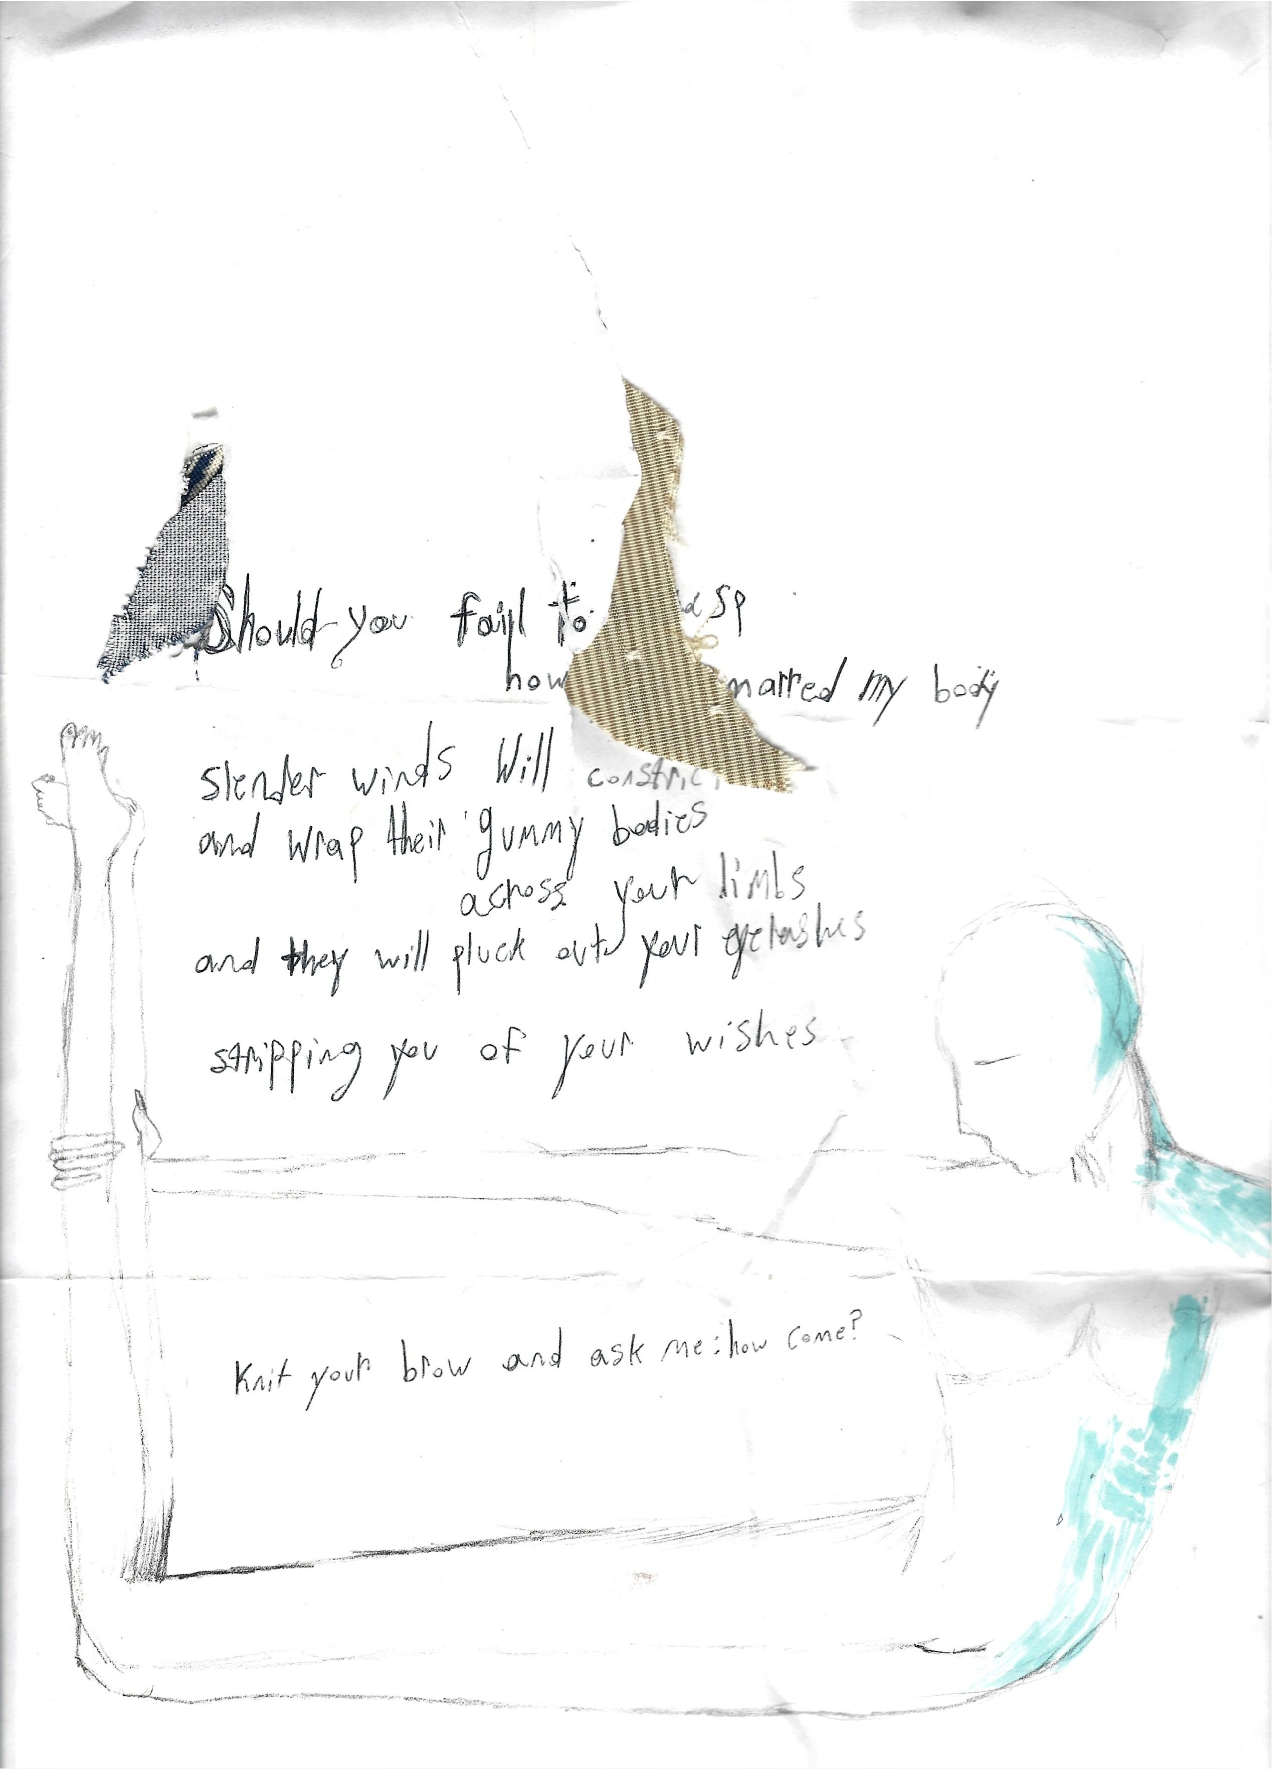 Should you fail to asp
how marred my body
slender winds Will constric
and wrap their gummy bodies
across your limbs
and they will pluck out your eyelashes
stripping you of your wishes
Knit your brow and ask me: how come?